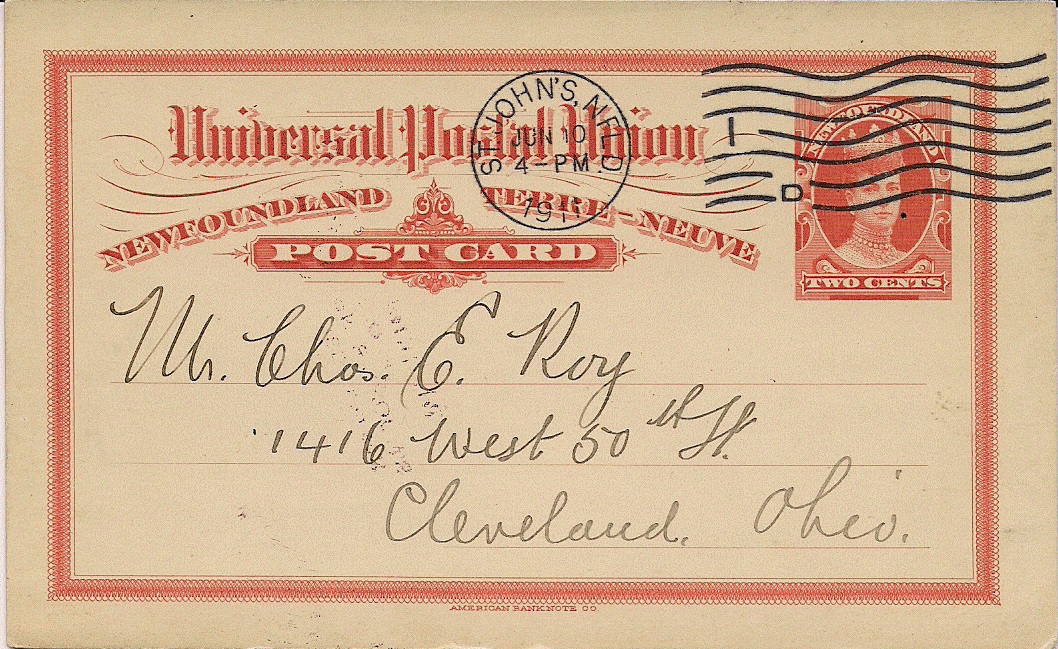 Universal Postal Union
NEWFOUNDLAND TERRE-NEUVE
POST CARD
ST. JOHN'S, NF'L'D.
JUN 10
4-PM
1911
I
D
NEWFOUNDLAND
TWO CENTS
Mr. Chas. E. Roy
1416 West 50th St.
Cleveland, Ohio.
AMERICAN BANK NOTE CO.